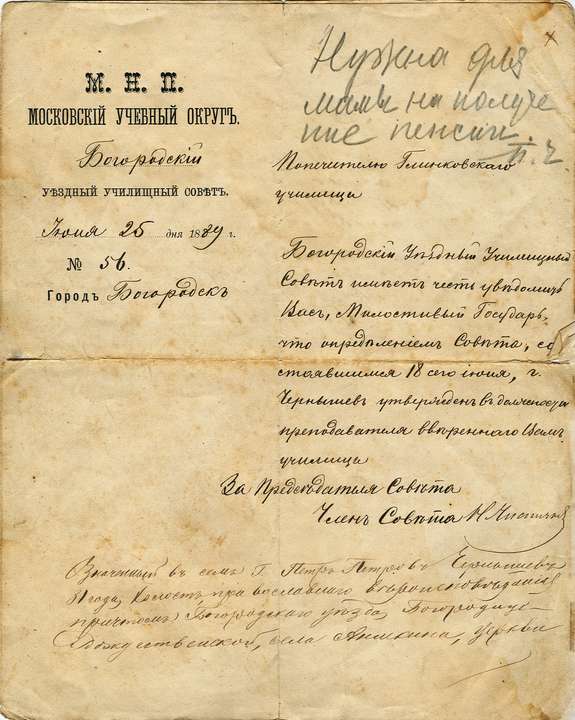 М. Н. П.
МОСКОВСКІЙ УЧЕБНЫЙ ОКРУГЪ.
Богородскій
УѢЗДНЫЙ УЧИЛИЩНЫЙ СОВѢТЪ.
Іюня 25 дня 1889 г.
№ 56.
Городъ Богородскъ
Нужна для
мамы на получе
ние пенсии.
П. Ч.
Попечителю Глинковскаго
училища
Богородскій Уѣздный Училищный
Совѣтъ имѣетъ честь увѣдомить
Васъ, Милостивый Государь,
что опредѣленіемъ Совѣта, со
стоявшимся 18 сего іюня, г.
Чернышев утвержденъ въ должности
преподавателя ввѣреннаго Вамъ
училища
За Предсѣдателя Совѣта
Членъ Совѣта Н.
Означенный въ семъ Г. Петръ Петровъ Чернышевъ
года, холостъ православнаго вѣроисповѣданія
причтомъ Богородскаго уѣзда, Богородице-
Рождественской, села Аникина, церкви